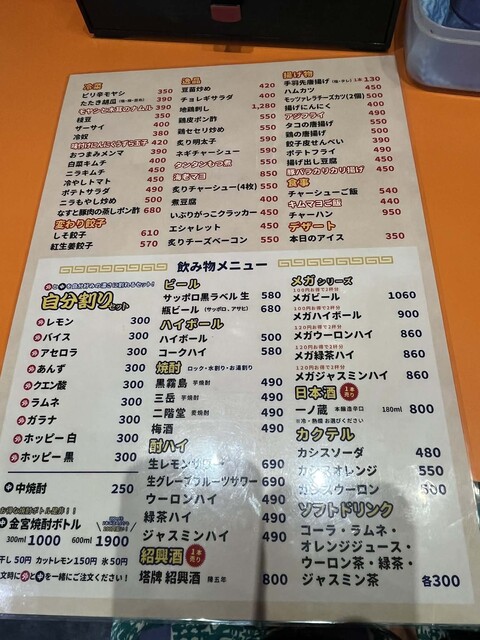 冷菜
ピリ辛モヤシ 350
たたき胡瓜 390
モヤシと木耳のナムル 390
枝豆 350
ザーサイ 400
冷奴 380
味付けにんにくうずら玉子 420
おつまみメンマ 390
白菜キムチ 400
ニラキムチ 450
冷やしトマト 450
ポテトサラダ 490
ニラもやし炒め 500
なすと豚肉の蒸しポン酢 680
変わり餃子
しそ餃子 610
紅生姜餃子 570
逸品
豆苗炒め 420
チョレギサラダ 400
地鶏刺し 1,280
鶏皮ポン酢 550
鶏セセリ炒め 550
炙り明太子 590
ネギチャーシュー 590
タンタンもつ煮 550
海老マヨ 850
炙りチャーシュー(4枚) 550
煮豆腐 400
いぶりがっこクラッカー 450
エシャレット 450
炙りチーズベーコン 550
揚げ物
手羽先唐揚げ 1本 130
ハムカツ 450
モッツァレラチーズカツ(2個) 500
揚げにんにく 400
アジフライ 490
タコの唐揚げ 550
鶏の唐揚げ 500
餃子皮せんべい 390
ポテトフライ 490
揚げ出し豆腐 450
豚バラカリカリ揚げ 450
食事
チャーシューご飯 540
キムマヨご飯 440
チャーハン 950
デザート
本日のアイス 350
飲み物メニュー
自分割りセット
外 レモン 300
外 バイス 300
外 アセロラ 300
外 あんず 300
外 クエン酸 300
外 ラムネ 300
外 ガラナ 300
外 ホッピー 白 300
外 ホッピー 黒 300
中 中焼酎 250
金宮焼酎ボトル
300ml 1000 600ml 1900
干し 50円 カットレモン150円 氷50円
文時に外と中を一緒にご注文ください！
ビール
サッポロ黒ラベル 生 580
瓶ビール (サッポロ、アサヒ) 680
ハイボール
ハイボール 500
コークハイ 580
焼酎 ロック・水割り・お湯割り
黒霧島 芋焼酎 490
三岳 芋焼酎 490
二階堂 麦焼酎 490
梅酒 490
酎ハイ
生レモンサワー 690
生グレープフルーツサワー 690
ウーロンハイ 490
緑茶ハイ 490
ジャスミンハイ 490
紹興酒 1本売り
塔牌 紹興酒 陳五年 800
メガシリーズ
100円お得で2杯分
メガビール 1060
100円お得で2杯分
メガハイボール 900
120円お得で2杯分
メガウーロンハイ 860
120円お得で2杯分
メガ緑茶ハイ 860
120円お得で2杯分
メガジャスミンハイ 860
日本酒 1本売り
一ノ蔵 本醸造辛口 180ml 800
※冷・熱燗 お選びください
カクテル
カシスソーダ 480
カシスオレンジ 550
カシスウーロン 500
ソフトドリンク
コーラ・ラムネ・
オレンジジュース・
ウーロン茶・緑茶・
ジャスミン茶 各300